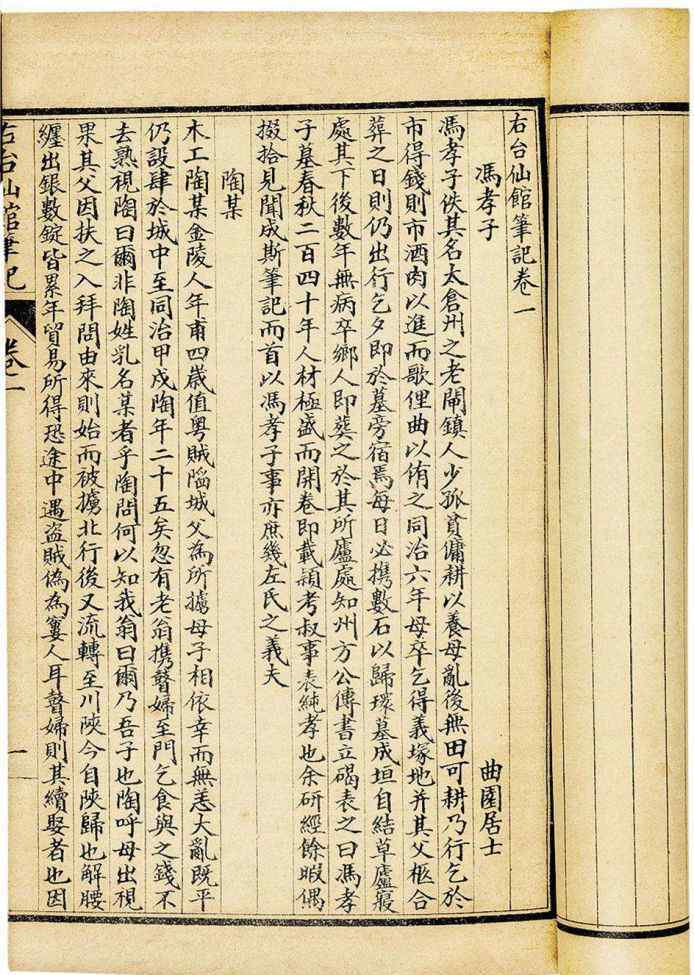 右台仙館筆記卷一
曲園居士
馮孝子
馮孝子佚其名太倉州之老閘鎮人少孤貧傭耕以養母亂後無田可耕乃行乞於
市得錢則市酒肉以進而歌俚曲以侑之同治六年母卒乞得義塚地并其父柩合
葬之日則仍出行乞夕即於墓旁宿焉每日必攜數石以歸環墓成垣自結草廬寢
處其下後數年無病卒鄉人即葬之於其所廬處知州方公傳書立碣表之曰馮孝
子墓春秋二百四十年人材極盛而開卷即載潁考叔事表純孝也余研經餘暇偶
掇拾見聞成斯筆記而首以馮孝子事亦庶幾左氏之義夫
陶某
木工陶某金陵人年甫四歲值粵賊陷城父為所擄母子相依幸而無恙大亂既平
仍設肆於城中至同治甲戌陶年二十五矣忽有老翁攜瞽婦至門乞食與之錢不
去熟視陶曰爾非陶姓乳名某者乎陶問何以知我翁曰爾乃吾子也陶呼母出視
果其父因扶之入拜問由來則始而被擄北行後又流轉至川陝今自陝歸也解腰
纏出銀數錠皆累年貿易所得恐途中遇盜賊偽為窶人耳瞽婦則其續娶者也因
右台仙館筆記
卷一
一